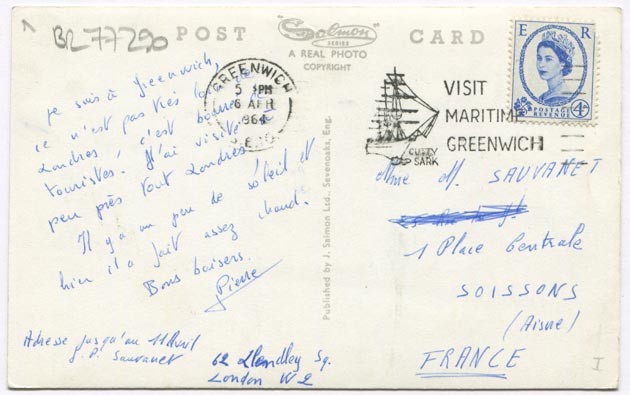 BR 77290
POST CARD
"Salmon"
SERIES
A REAL PHOTO
COPYRIGHT
GREENWICH
5 PM
6 APR
1964
S.E.10
VISIT
MARITIME
GREENWICH
CUTTY
SARK
E R
POSTAGE
REVENUE
4D
Je suis à Greenwich,
ce n'est pas très loin de
Londres, c'est bourré de
touristes! J'ai visité à
peu près tout Londres!
Il y a un peu de soleil et
hier il a fait assez chaud.
Bons baisers.
Pierre
Adresse jusqu'au 11 Avril
J.P. Sauvanet
62 Sq.
London W2
Published by J. Salmon Ltd., Sevenoaks, Eng.
Mme M. SAUVANET
1 Place Centrale
SOISSONS
(Aisne)
FRANCE
I